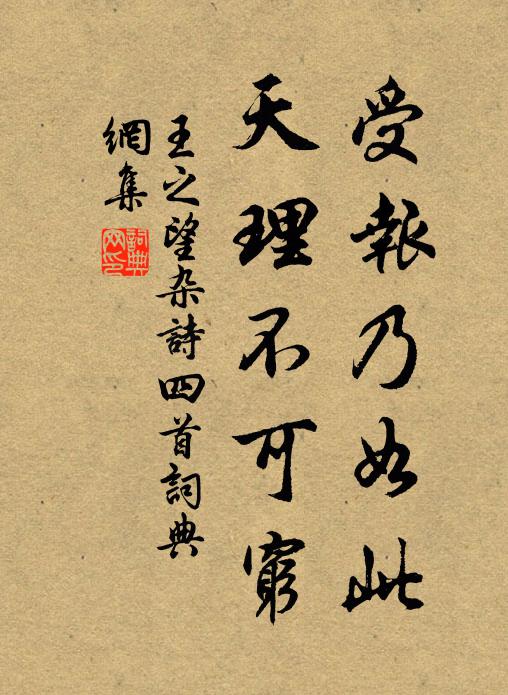 受報乃如此
天理不可窮
王之望杂詩四首詞典
網集
詞典
网印